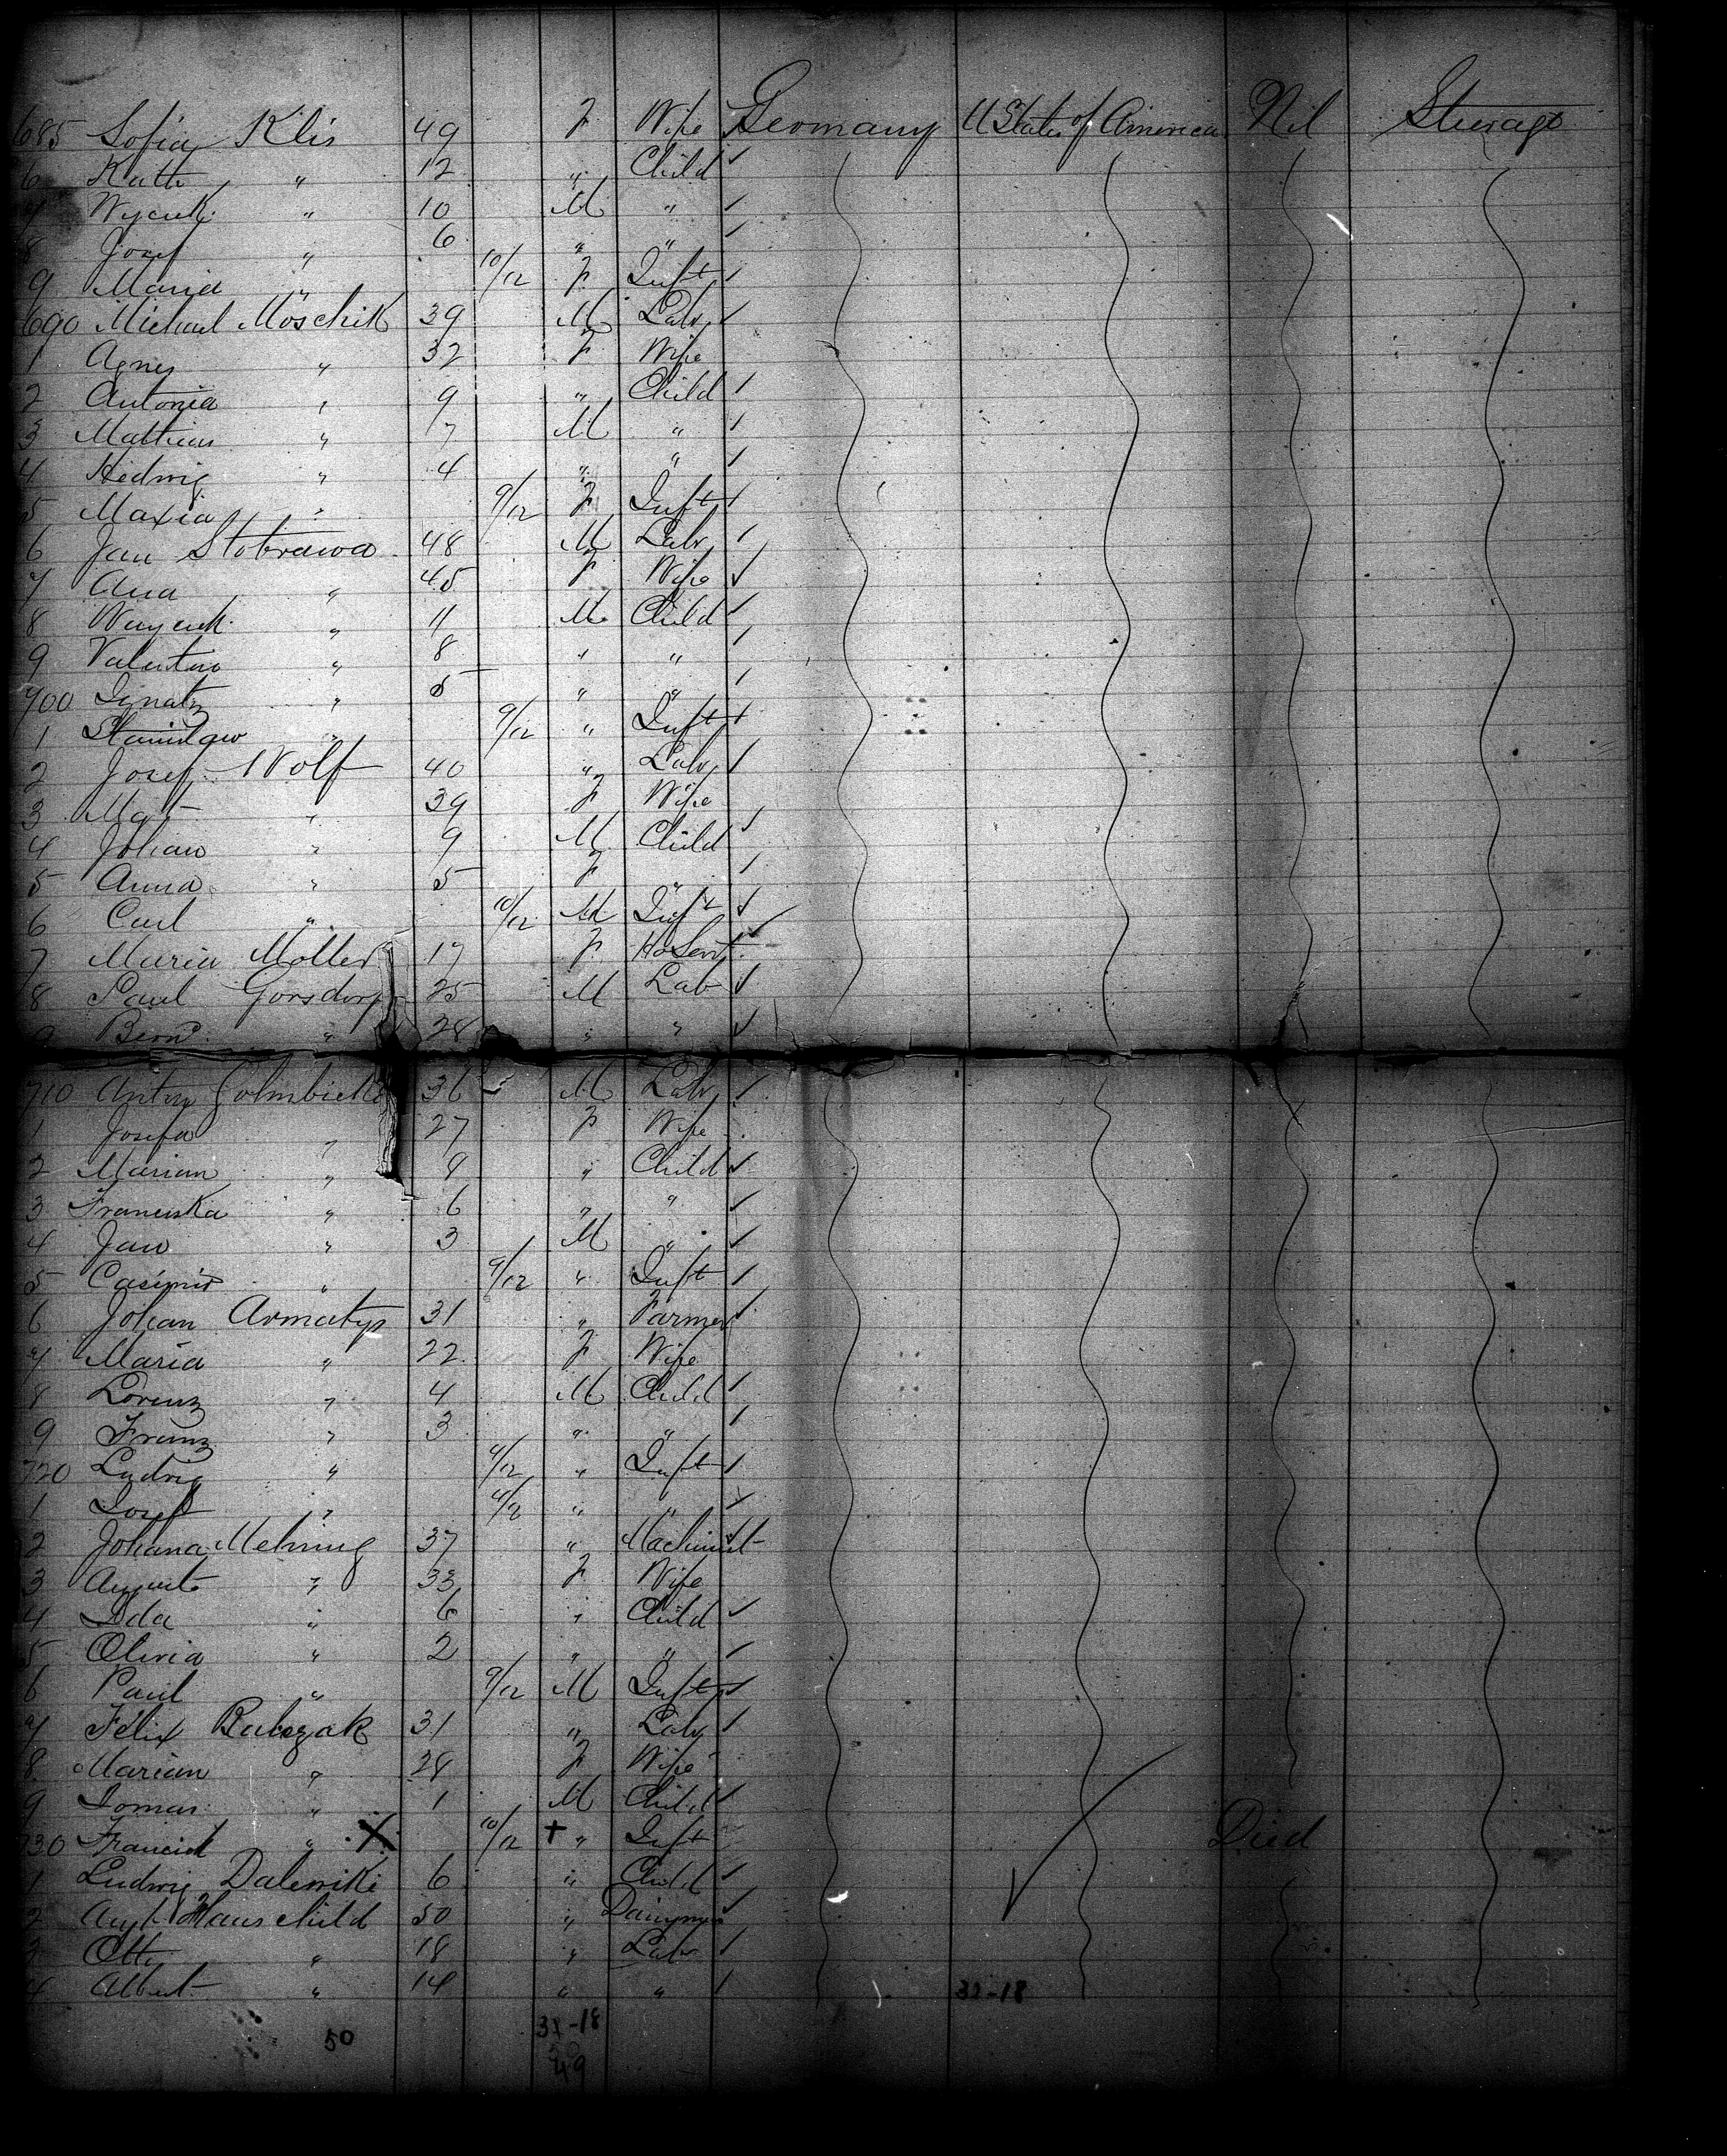 685 Sofia Klis 49 F Wife Germany U States of America Nil Steerage
6 Kath " 12 " Child
7 Wycuk " 10 M "
8 Josef " 6 " "
9 Maria " 10/12 F Inft
690 Michael Moschik 39 M Labr
1 Agnes " 32 F Wife
2 Antonia " 9 " Child
3 Mathias " 7 M "
4 Hedwig " 4 " "
5 Maria " 9/12 F Inft
6 Jan Stobrawa 48 M Labr
7 Ana " 45 F Wife
8 Woycuk " 11 M Child
9 Valentin " 8 " "
700 Ignatz " 5 " "
1 Stanislaw " 9/12 " Inft
2 Josef Wolf 40 " Labr
3 Mat " 39 F Wife
4 Johan " 9 M Child
5 Anna " 5 F "
6 Carl " 10/12 M Inft
7 Maria Moller 17 F HoServt
8 Paul Gorsdorf 25 M Lab
9 Bern " 28 " "
710 Anton Golmbicki 36 M Labr
1 Josefa " 27 F Wife
2 Marian " 9 " Child
3 Franciska " 6 " "
4 Jan " 3 M "
5 Casimir " 9/12 " Inft
6 Johan Armatys 31 " Farmer
7 Maria " 22 F Wife
8 Lorenz " 4 M Child
9 Franz " 3 " "
720 Ludwig " 4/12 " Inft
1 Josef " 4/12 " "
2 Johana Mehring 37 " Machinist
3 Auguste " 33 F Wife
4 Ida " 6 " Child
5 Olivia " 2 " "
6 Paul " 9/12 M Inft
7 Felix Balczak 31 " Labr
8 Marian " 28 F Wife
9 Tomas " 1 M Child
730 Francisk " X 10/12 + " Inft Died
1 Ludwig Dalewiki 6 " Child
2 Augt Hauschild 50 " Dairyman
3 Otto " 18 " Labr
4 Albert " 14 " "
32-18
50 3X-18
49